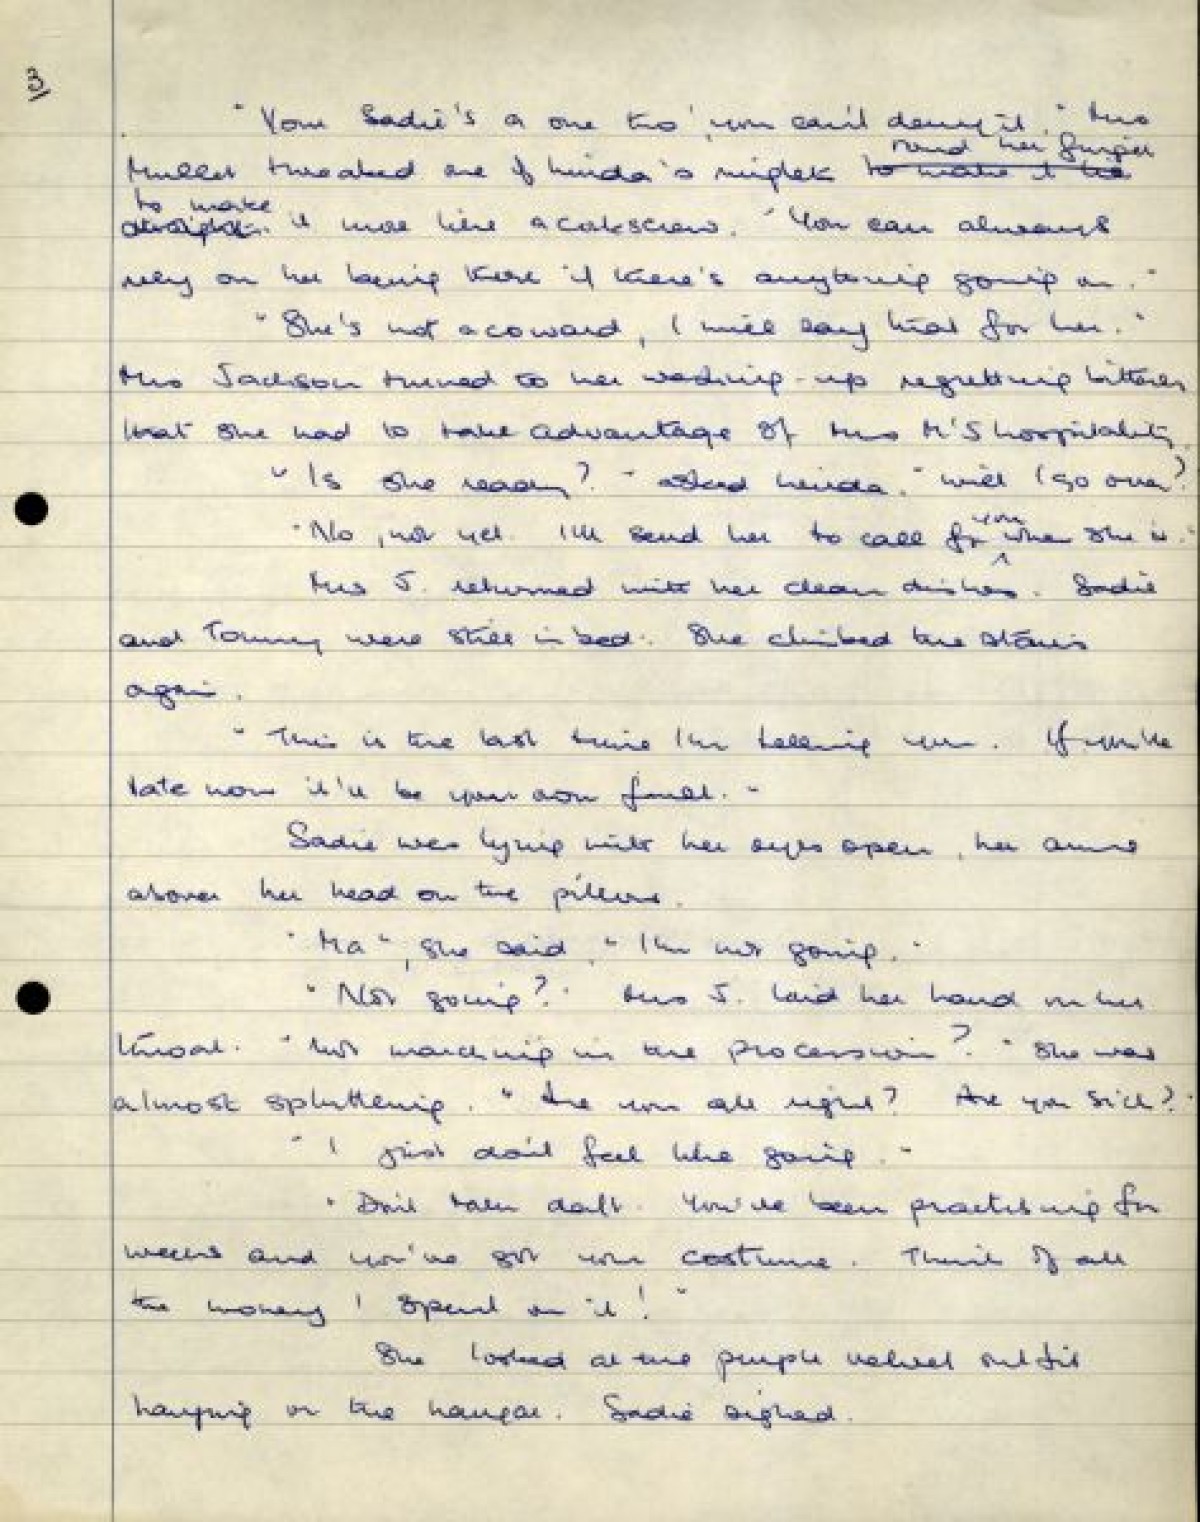 3
"Your Sadie's a one tho' you can't deny it." Mrs
round her finger
Mullet threaded one of Linda's ringlets to make it be
to make
straight. it more like a corkscrew. "You can always
rely on her being there if there's anything going on."
"She's not a coward, I will say that for her."
Mrs Jackson turned to her washing-up regretting bitterly
that she had to take advantage of Mrs M's hospitality.
"Is she ready?" asked Linda. "Will I go over?"
you
"No, not yet. I'll send her to call for when she is."
Mrs J. returned with her clean dishes. Sadie
and Tommy were still in bed. She climbed the stairs
again.
"This is the last time I'm telling you. If you're
late now it'll be your own fault."
Sadie was lying with her eyes open, her arms
above her head on the pillow.
"Ma", she said, "I'm not going."
"Not going?" Mrs J. laid her hand on her
throat. "Not marching in the procession?" She was
almost spluttering. "Are you all right? Are you sick?"
"I just don't feel like going."
"Don't talk daft. You've been practising for
weeks and you've got your costume. Think of all
the money I spent on it!"
She looked at the purple velvet outfit
hanging on the hanger. Sadie sighed.